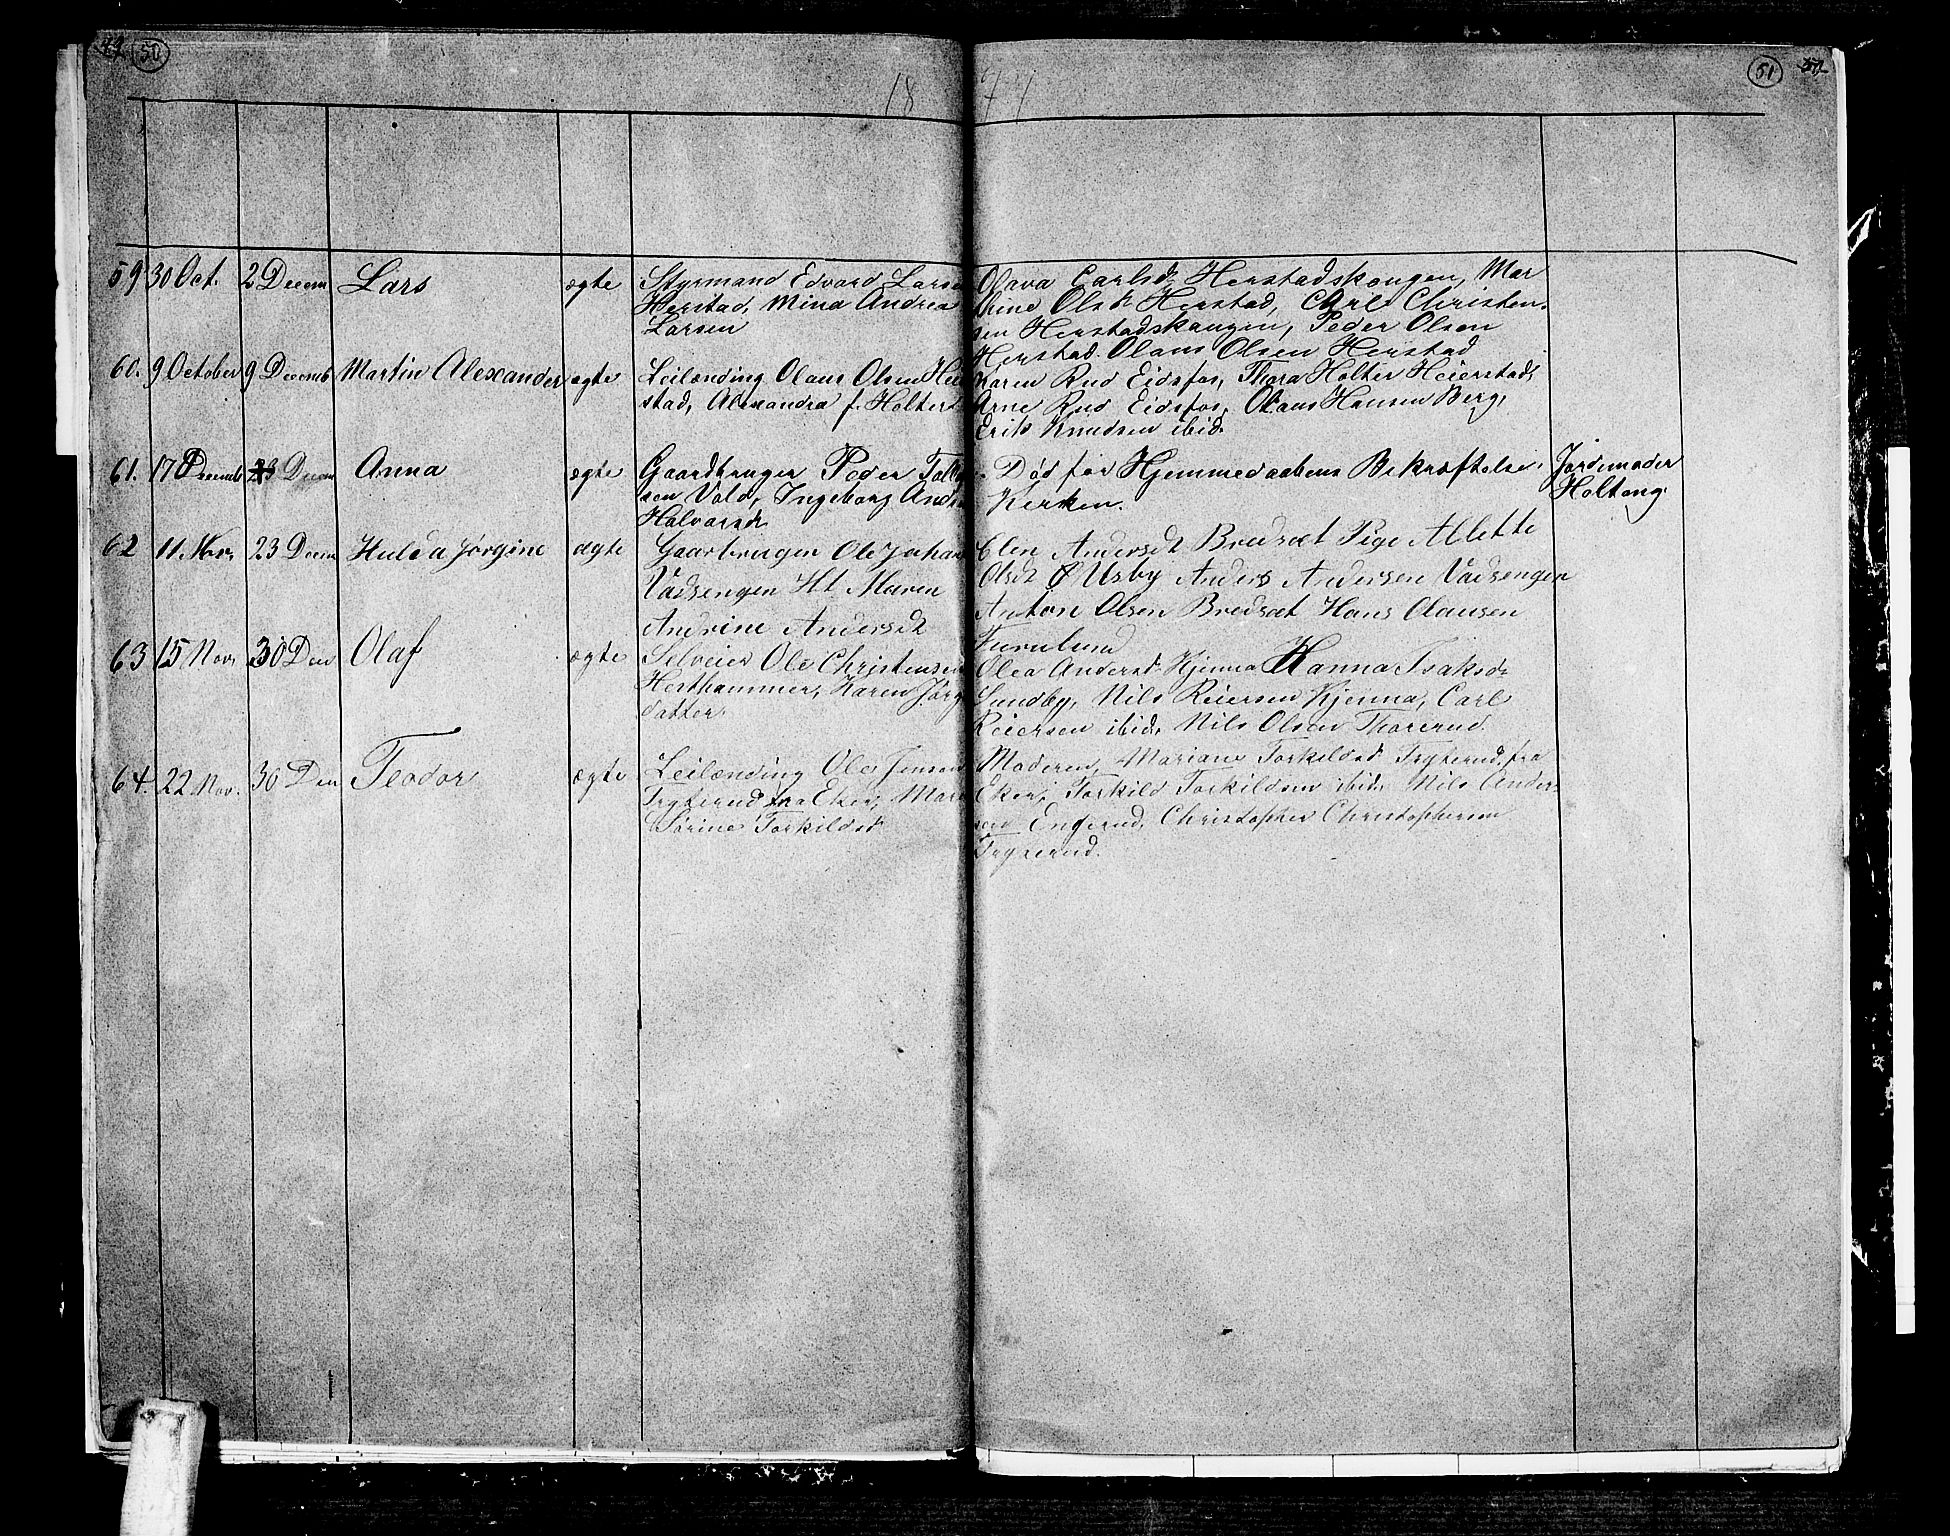 49 50
18 77
51 52
59 30 Oct. 2 Decem Lars ægte Styrmand Edvard Larse
Herstad, Mina Andrea
Larsen
Olava Carlsd. Herstadskougen, Mar
thine Olsdt Herstad, Carl Christen-
sen Herstadskougen, Peder Olsen
Herstad. Olaus Olsen Herstad
60. 9 October 9 Decemb Martin Alexander ægte Leilænding Olaus Olsen Hei
stad, Alexandra f. Holter
Karen Rud Eidsfos, Thora Holter Heierstad,
Arne Rud Eidsfos, Olaus Hansen Berg,
Erik Knudsen ibid.
61. 17 Decemb 23 Decem Anna ægte Gaardbruger Peder Toll
sen Vold, Ingeborg Ands
Halvorsdt
Død før Hjemmedaabens Bekræftelse,
Kirken.
Jordemoder
Holtang.
62 11. Nov. 23 Decem Hulda Jørgine ægte Gaarbrugen Ole Johan
Vadsengen Ht Maren
Andrine Andersdt
Elen Andersdt Bredsæt Pige Allette
Olsdt Ø Usby Anders Andersen Vadsengen
Anton Olsen Bredsæt Hans Olausen
Furulund
63 15 Nov. 30 Den Olaf ægte Selveier Ole Christensen
Hesthammer, Karen Jørg
datter.
Olea Andersd. Hjenna Hanna Isaksdr
Sundby, Nils Reiersen Hjenna, Carl
Reiersen ibid, Nils Olsen Thorerud.
64. 22 Nov. 30 Den Teodor ægte Leilænding Ole Jensen
Tryterud fra Eker, Mare
Sørine Torkildsd
Moderen, Mariane Torkildsd Tryterud, fra
Eker, Torkild Torkildsen ibid, Nils Ander-
sen Engerud, Christopher Christophersen
Tryterud.